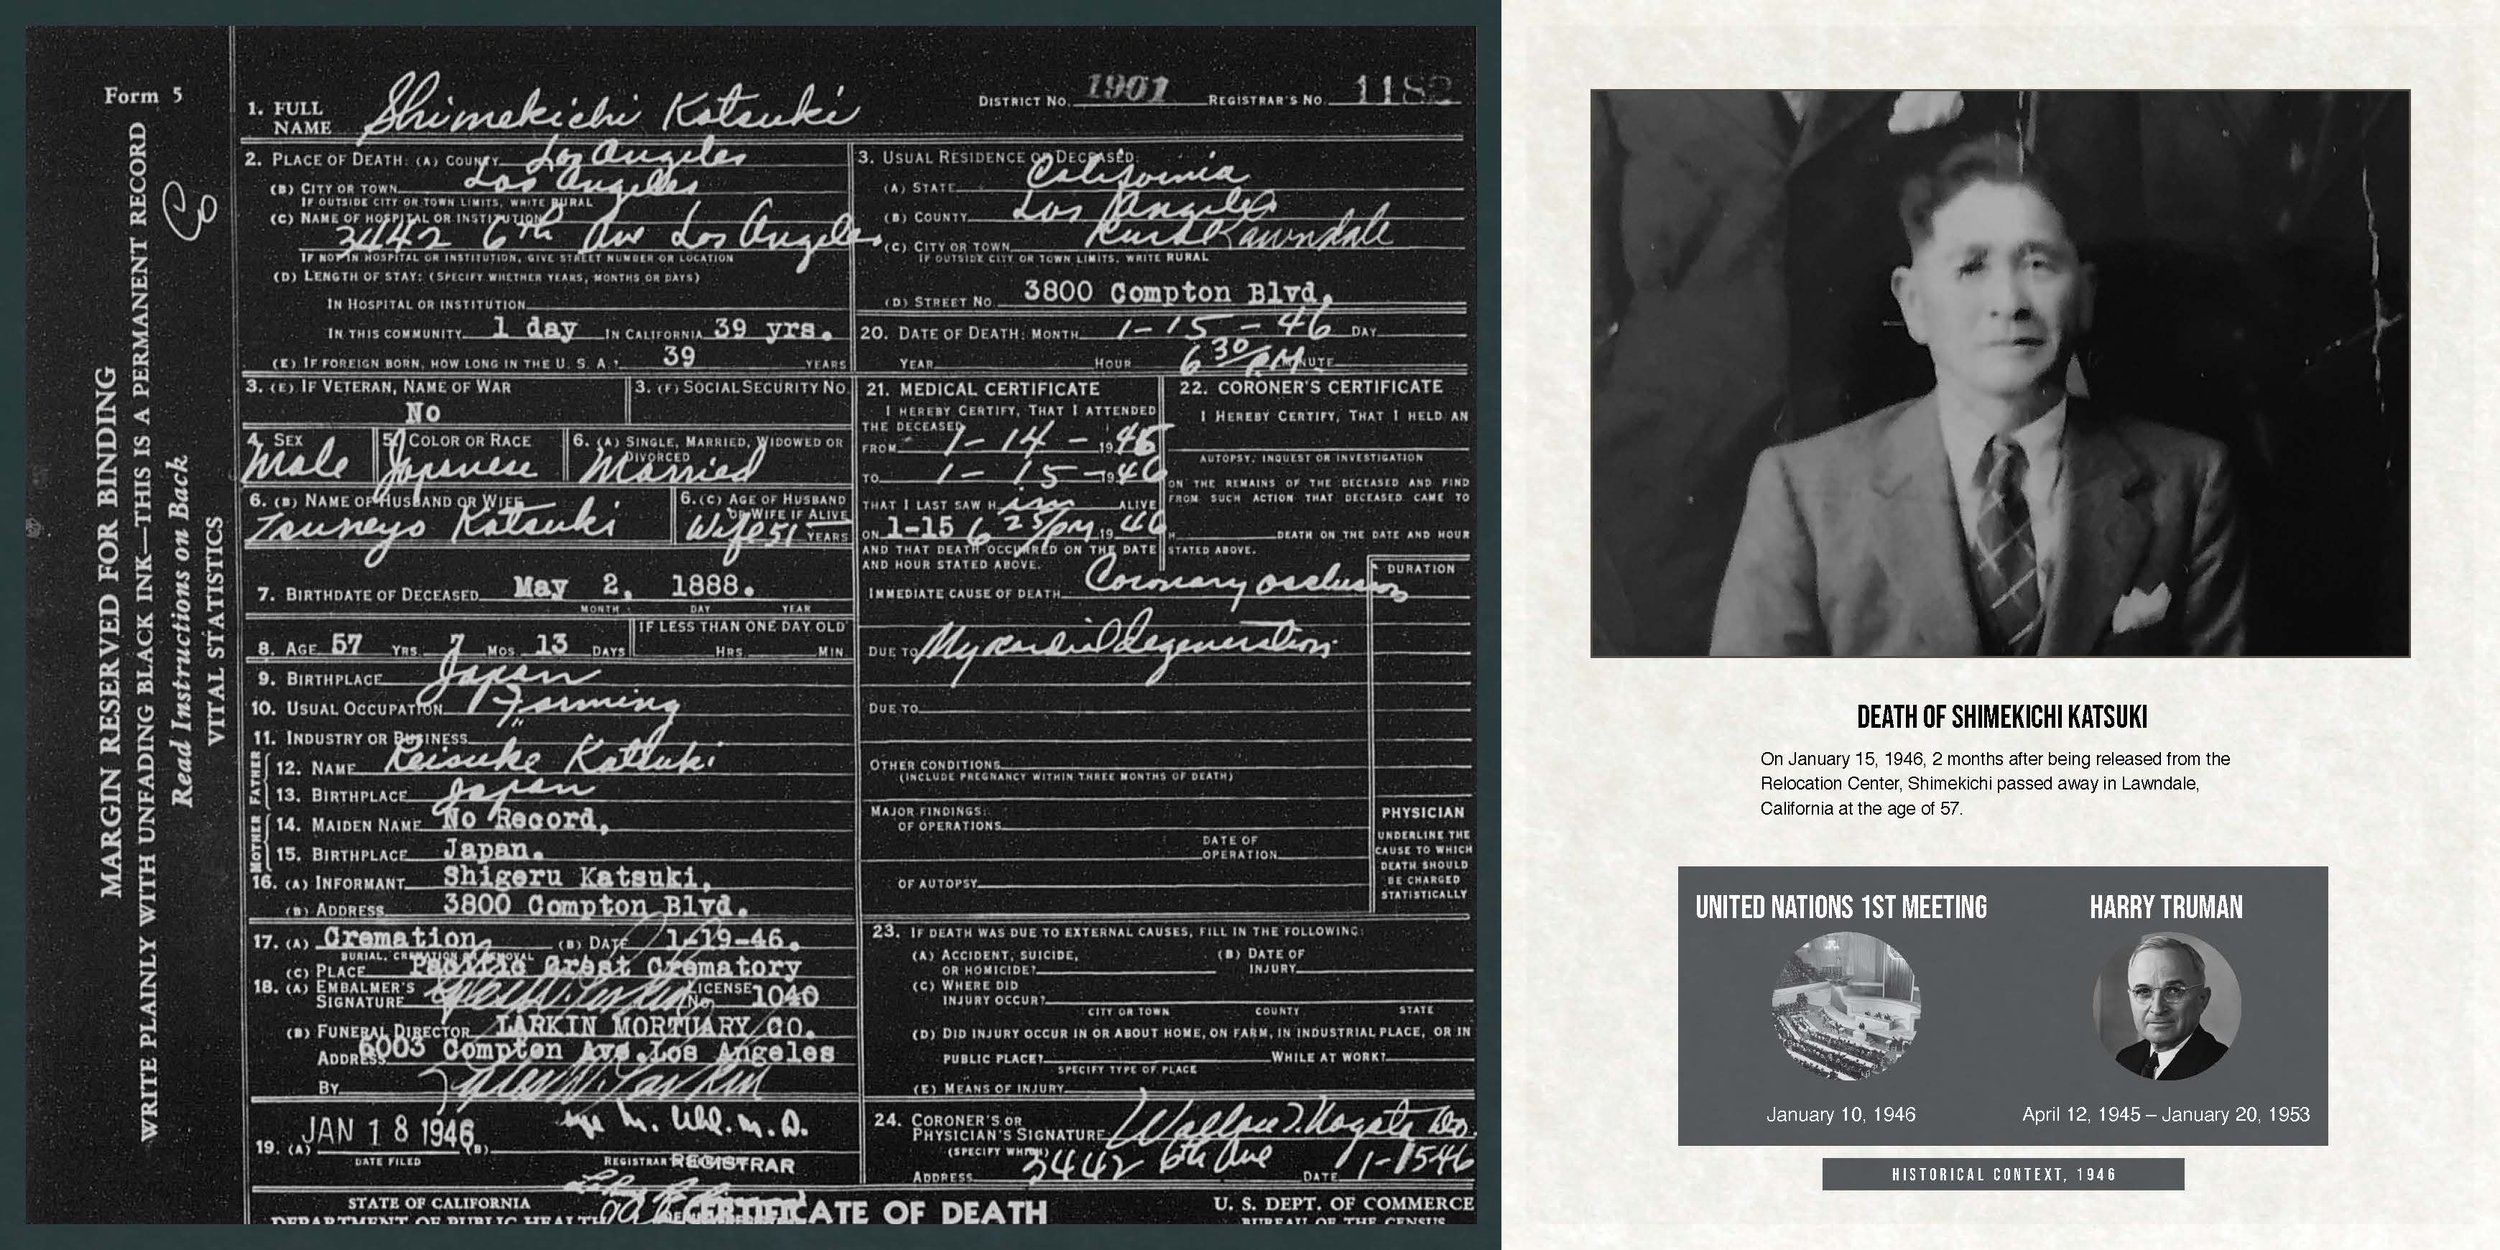 Form 5
MARGIN RESERVED FOR BINDING
WRITE PLAINLY WITH UNFADING BLACK INK—THIS IS A PERMANENT RECORD
Read Instructions on Back
VITAL STATISTICS
1. FULL NAME Shimekichi Katsuki
DISTRICT No. 1901 REGISTRAR'S No. 1182
2. PLACE OF DEATH: (A) COUNTY Los Angeles
(B) CITY OR TOWN Los Angeles
IF OUTSIDE CITY OR TOWN LIMITS, WRITE RURAL
(C) NAME OF HOSPITAL OR INSTITUTION
3442 6th Ave Los Angeles
IF NOT IN HOSPITAL OR INSTITUTION, GIVE STREET NUMBER OR LOCATION
(D) LENGTH OF STAY: (SPECIFY WHETHER YEARS, MONTHS OR DAYS)
IN HOSPITAL OR INSTITUTION
IN THIS COMMUNITY 1 day IN CALIFORNIA 39 yrs.
(E) IF FOREIGN BORN, HOW LONG IN THE U. S. A.? 39 YEARS
3. USUAL RESIDENCE OF DECEASED:
(A) STATE California
(B) COUNTY Los Angeles
(C) CITY OR TOWN Rural Lawndale
IF OUTSIDE CITY OR TOWN LIMITS, WRITE RURAL
(D) STREET No. 3800 Compton Blvd.
20. DATE OF DEATH: MONTH 1-15-46 DAY
YEAR HOUR 6 30/PM MINUTE
3. (E) IF VETERAN, NAME OF WAR
No
3. (F) SOCIAL SECURITY No.
4. SEX Male
5. COLOR OR RACE Japanese
6. (A) SINGLE, MARRIED, WIDOWED OR DIVORCED
Married
6. (B) NAME OF HUSBAND OR WIFE
Tsuneyo Katsuki
6. (C) AGE OF HUSBAND OR WIFE IF ALIVE
Wife 51 YEARS
7. BIRTHDATE OF DECEASED May 2, 1888.
MONTH DAY YEAR
8. AGE 57 YRS. 7 MOS. 13 DAYS
IF LESS THAN ONE DAY OLD
HRS. MIN
9. BIRTHPLACE Japan
10. USUAL OCCUPATION Farming
11. INDUSTRY OR BUSINESS "
FATHER
12. NAME Keisuke Katsuki
13. BIRTHPLACE Japan
MOTHER
14. MAIDEN NAME No Record,
15. BIRTHPLACE Japan.
16. (A) INFORMANT Shigeru Katsuki,
(B) ADDRESS 3800 Compton Blvd.
17. (A) Cremation, (B) DATE 1-19-46.
BURIAL, CREMATION OR REMOVAL
(C) PLACE Pacific Crest Crematory
18. (A) EMBALMER'S SIGNATURE LICENSE No. 1040
(B) FUNERAL DIRECTOR LARKIN MORTUARY CO.
ADDRESS 6003 Compton Ave. Los Angeles
By
19. (A) JAN 18 1946 (B)
DATE FILED REGISTRAR REGISTRAR
21. MEDICAL CERTIFICATE
I HEREBY CERTIFY, THAT I ATTENDED
THE DECEASED
FROM 1-14-1946
TO 1-15-1946
THAT I LAST SAW H im ALIVE
ON 1-15 6 25/PM, 1946
AND THAT DEATH OCCURRED ON THE DATE
AND HOUR STATED ABOVE.
22. CORONER'S CERTIFICATE
I HEREBY CERTIFY, THAT I HELD AN
AUTOPSY, INQUEST OR INVESTIGATION
ON THE REMAINS OF THE DECEASED AND FIND
FROM SUCH ACTION THAT DECEASED CAME TO
H DEATH ON THE DATE AND HOUR
STATED ABOVE.
IMMEDIATE CAUSE OF DEATH Coronary occlusion
DURATION
DUE TO Myocardial Degeneration
DUE TO
OTHER CONDITIONS
(INCLUDE PREGNANCY WITHIN THREE MONTHS OF DEATH)
MAJOR FINDINGS:
OF OPERATIONS
DATE OF OPERATION
OF AUTOPSY
PHYSICIAN
UNDERLINE THE
CAUSE TO WHICH
DEATH SHOULD
BE CHARGED
STATISTICALLY
23. IF DEATH WAS DUE TO EXTERNAL CAUSES, FILL IN THE FOLLOWING:
(A) ACCIDENT, SUICIDE, OR HOMICIDE?
(B) DATE OF INJURY
(C) WHERE DID INJURY OCCUR?
CITY OR TOWN COUNTY STATE
(D) DID INJURY OCCUR IN OR ABOUT HOME, ON FARM, IN INDUSTRIAL PLACE, OR IN
PUBLIC PLACE? WHILE AT WORK?
SPECIFY TYPE OF PLACE
(E) MEANS OF INJURY
24. CORONER'S OR PHYSICIAN'S SIGNATURE Wallace
(SPECIFY WHICH)
ADDRESS 3442 6th Ave DATE 1-1546
STATE OF CALIFORNIA
DEPARTMENT OF PUBLIC HEALTH
CERTIFICATE OF DEATH
U. S. DEPT. OF COMMERCE
BUREAU OF THE CENSUS
DEATH OF SHIMEKICHI KATSUKI
On January 15, 1946, 2 months after being released from the
Relocation Center, Shimekichi passed away in Lawndale,
California at the age of 57.
UNITED NATIONS 1ST MEETING
January 10, 1946
HARRY TRUMAN
April 12, 1945 – January 20, 1953
HISTORICAL CONTEXT, 1946